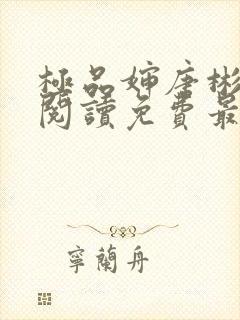 極品婶唐彬
閱讀免費最
寧蘭舟